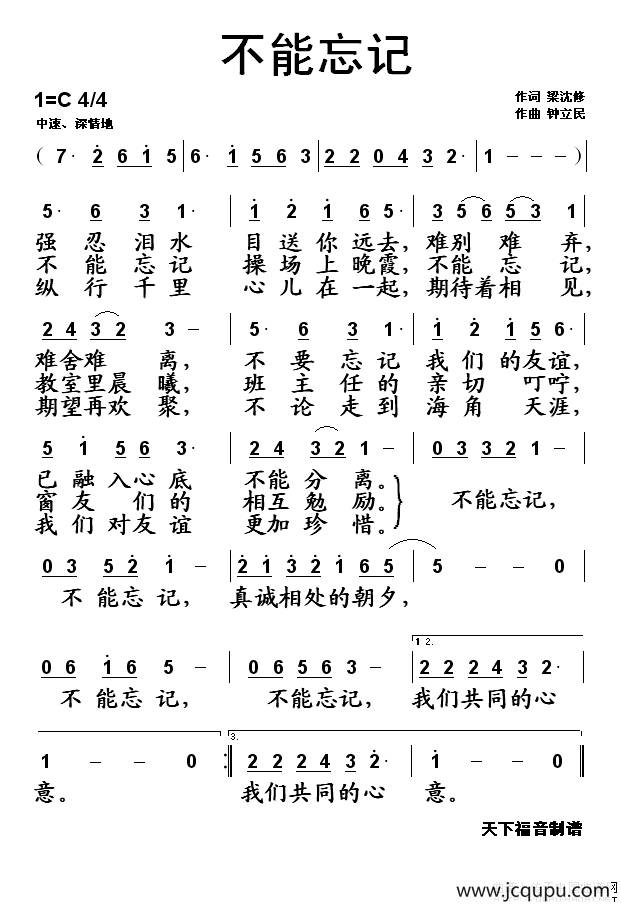 不能忘记
1=C 4/4
作词 梁沈修
中速、深情地
作曲 钟立民
( 7· 2 6 1 5 | 6· 1 5 6 3 | 2 2 0 4 3 2· | 1 - - - )
5· 6 3 1· | 1 2 1 6 5· | 3 5 6 5 3 1
强忍泪水 目送你远去, 难别难弃,
不能忘记 操场上晚霞, 不能忘记,
纵行千里 心儿在一起, 期待着相见,
2 4 3 2 3 - | 5· 6 3 1· | 1 2 1 5 6·
难舍难离, 不要忘记 我们的友谊,
教室里晨曦, 班主任的 亲切叮咛,
期望再欢聚, 不论走到 海角天涯,
5 1 5 6 3· | 2 4 3 2 1 - | 0 3 3 2 1 -
已融入心底 不能分离。
窗友们的 相互勉励。 不能忘记,
我们对友谊 更加珍惜。
0 3 5 2 1 - | 2 1 3 2 1 6 5 | 5 - - 0
不能忘记, 真诚相处的朝夕,
1 2.
0 6 1 6 5 - | 0 6 5 6 3 - | 2 2 2 4 3 2·
不能忘记, 不能忘记, 我们共同的心
3.
1 - - 0 :‖ 2 2 2 4 3 2· | 1 - - 0 ‖
意。 我们共同的心 意。
天下福音制谱
www.jcqupu.com